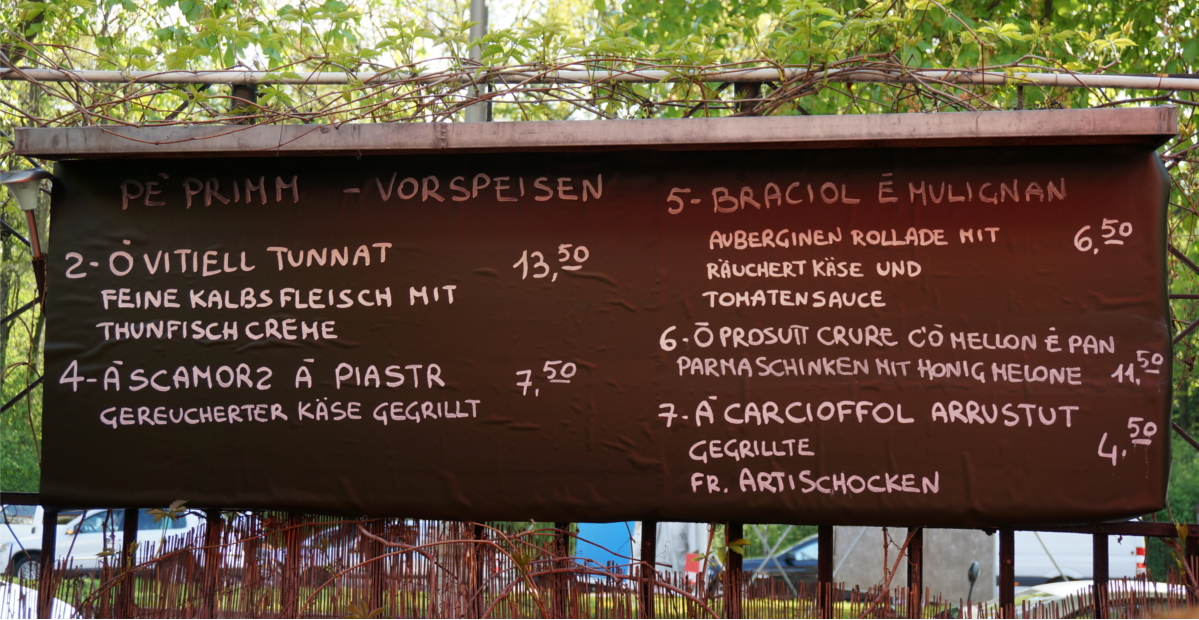 PÈ PRIMM - VORSPEISEN
2- Ō VITIELL TUNNAT 13,50
FEINE KALBSFLEISCH MIT
THUNFISCHCREME
4- ĀSCAMORZ Ā PIASTR 7,50
GEREUCHERTER KÄSE GEGRILLT
5- BRACIOL Ē MULIGNAN
AUBERGINEN ROLLADE MIT 6,50
RÄUCHERT KÄSE UND
TOMATENSAUCE
6- Ō PROSUTT CRURE C'Ō MELLON Ē PAN
PARMASCHINKEN MIT HONIG MELONE 11,50
7- Ā CARCIOFFOL ARRUSTUT
GEGRILLTE 4,50
FR. ARTISCHOCKEN